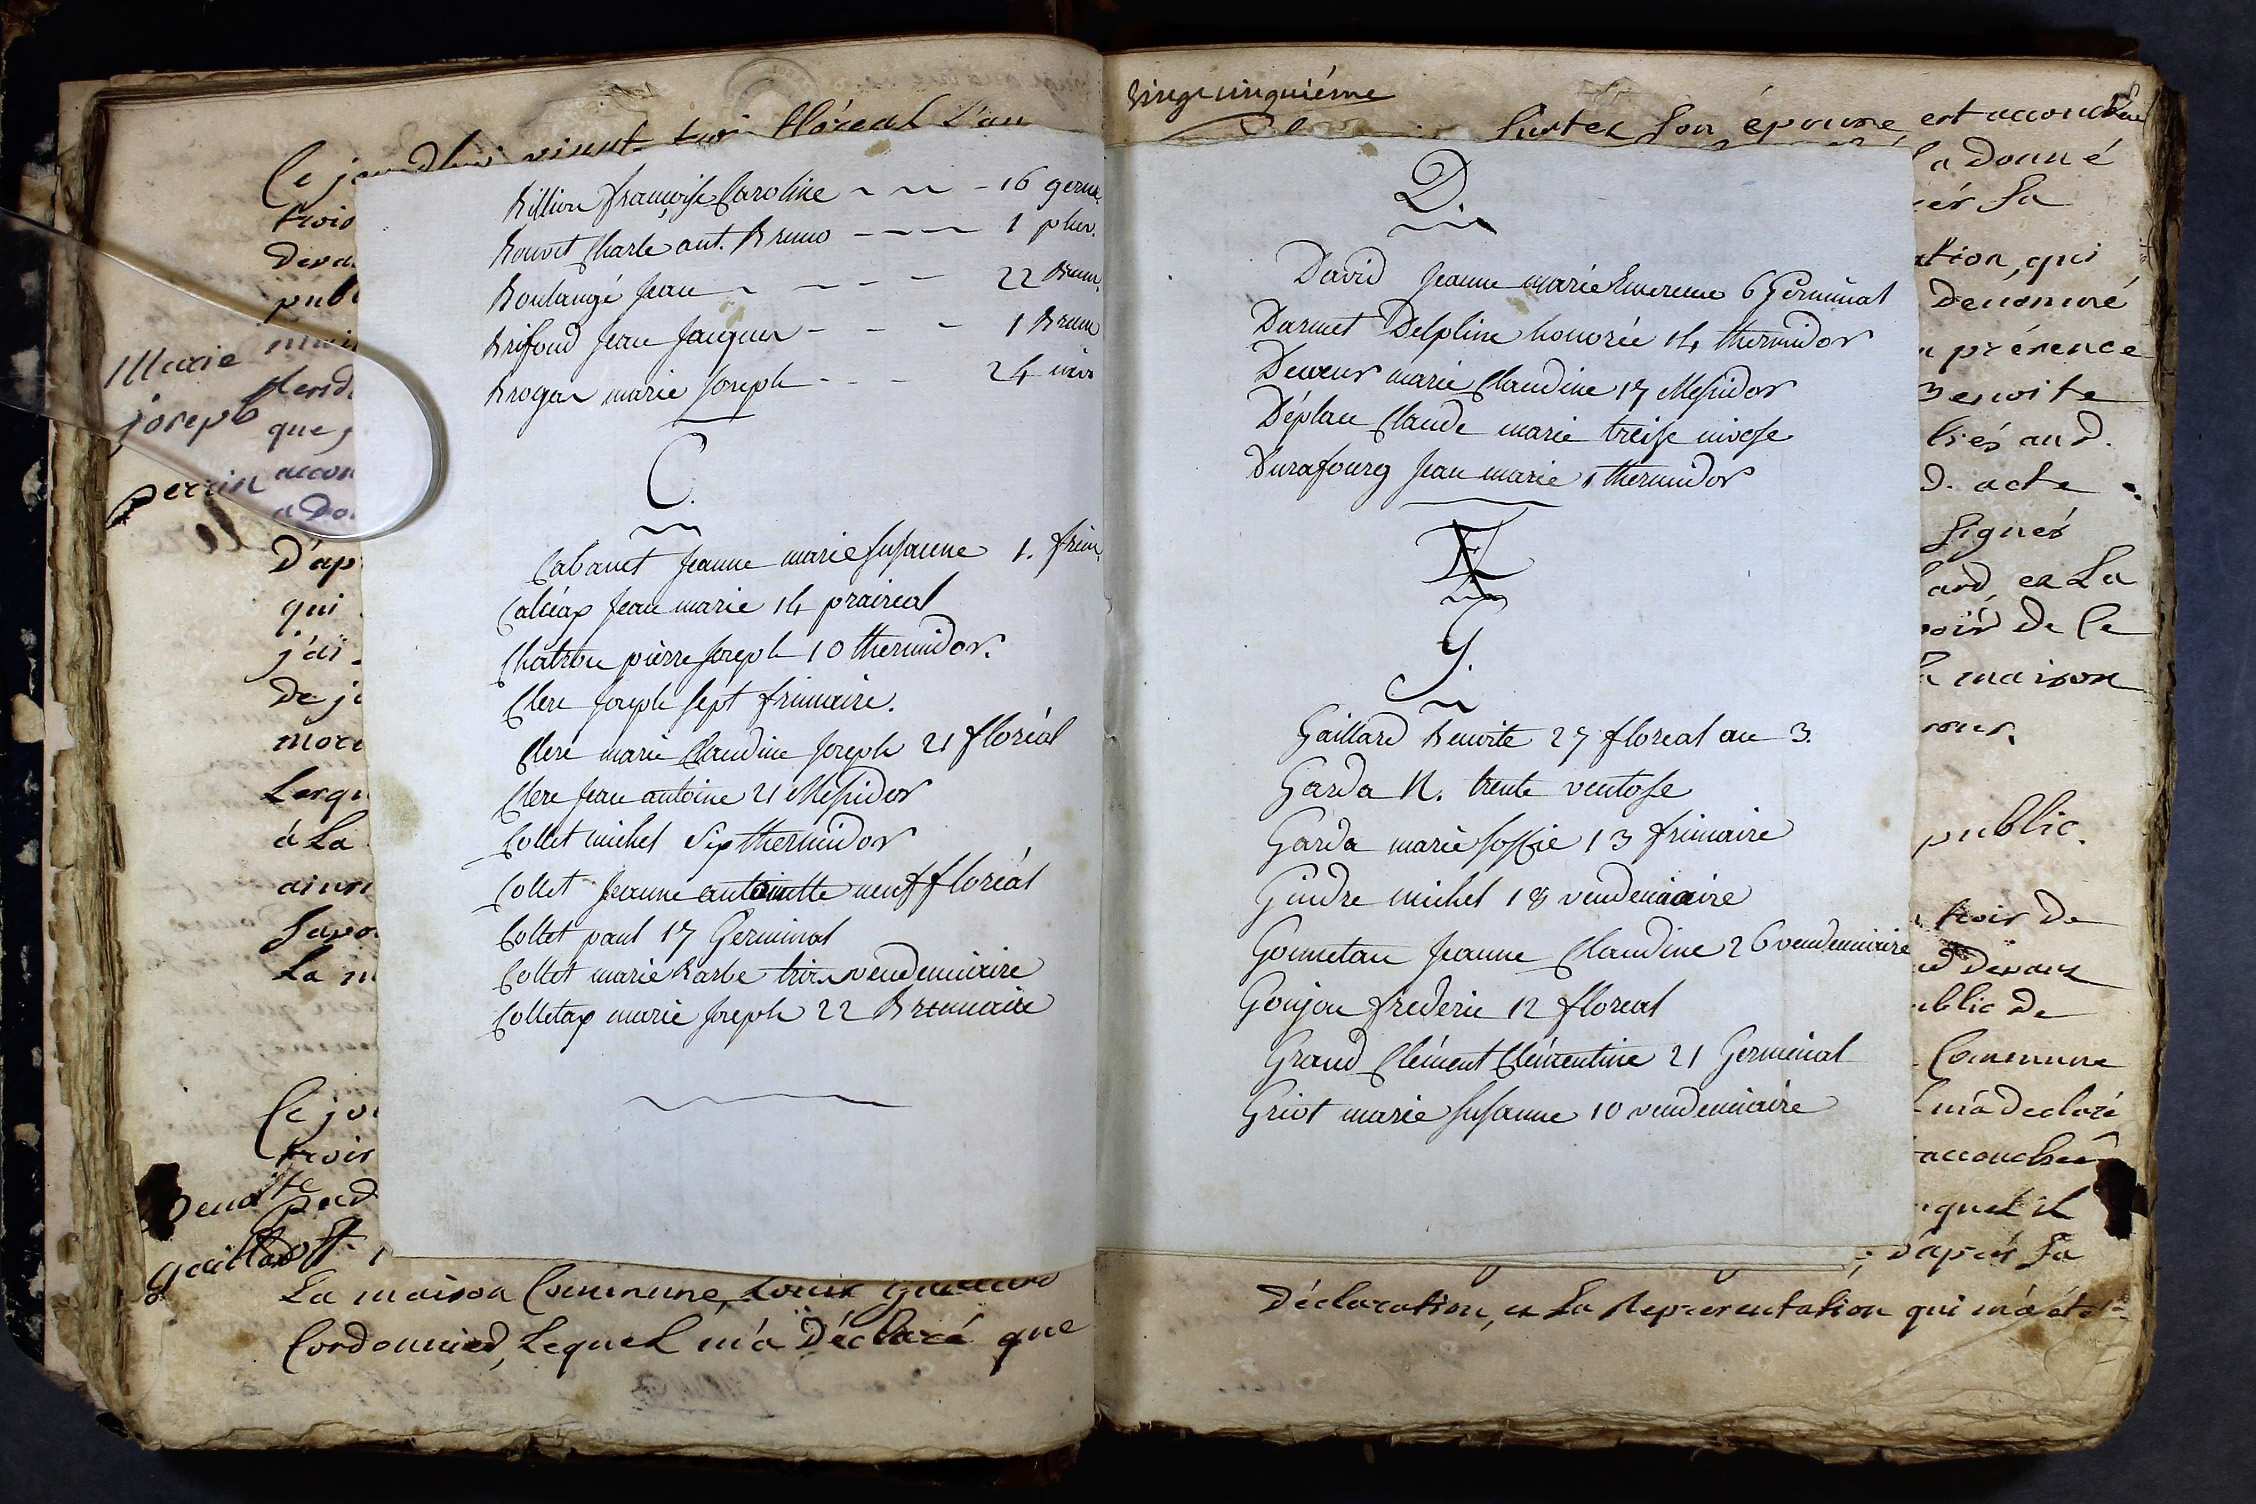 vingt cinquiéme
trois floréal L'an
Suzter Son épouse, est accouchée
trois
pub
Marie
joseph
perrin
que
accou
D'ap
qui
j'ai
De j
Lesqu
à La
ainsi
Savo
La m
Ce jo
trois
Benoîte
gaillard
Billion françoise Caroline - 16 germ.
Bouvet Charle ant. Bruno - 1 pluv.
Boulangé Jean - 22 Brum.
Brifoud Jean Jacques - 1 Brum
Brogar marie Joseph - 24 nivo
C.
Cabanet Jeanne marie Susanne 1. frim.
Calcéaz Jean marie 14 prairial
Chatron pierre Joseph 10 thermidor.
Clere Joseph sept frimaire.
Clere marie Claudine Joseph 21 floréal
Clere Jean antoine 21 Messidor
Collet michel Six thermidor
Collet Jeanne antoinette neuf floréal
Collet paul 17 Germinal
Collet marie Barbe trois vendemiaire
Colletaz marie Joseph 22 Brumaire
La maison Commune, Louis gaillard
Cordonnied, Lequel m'a Déclaré que
D.
David Jeanne marie Emerence 6 Germinal
Darmet Delphine honorée 14 thermidor
Deveur marie Claudine 17 Messidor
Déplan Claude marie treise nivose
Durafourg Jean marie 1 thermidor
F.
G.
Gaillard Benoite 27 floreal an 3.
Garda N. trente ventose
Garda marie Soffie 13 frimaire
Gindre michel 18 vendemiaire
Gonnetan Jeanne Claudine 26 vendemiaire
Goujon frederic 12 floreal
Grand Clément Clémentine 21 Germinal
Griot marie Susanne 10 vendemiaire
la Donné
Sa
ation, qui
Denommé
présence
Benoite
liés aud.
D. acte
Signés
ard, et La
De Ce
maison
public.
trois De
devant
ublic De
Commune
m'a declaré
accouchée
quel il
D'après Sa
Déclaration, et La Representation qui m'a été